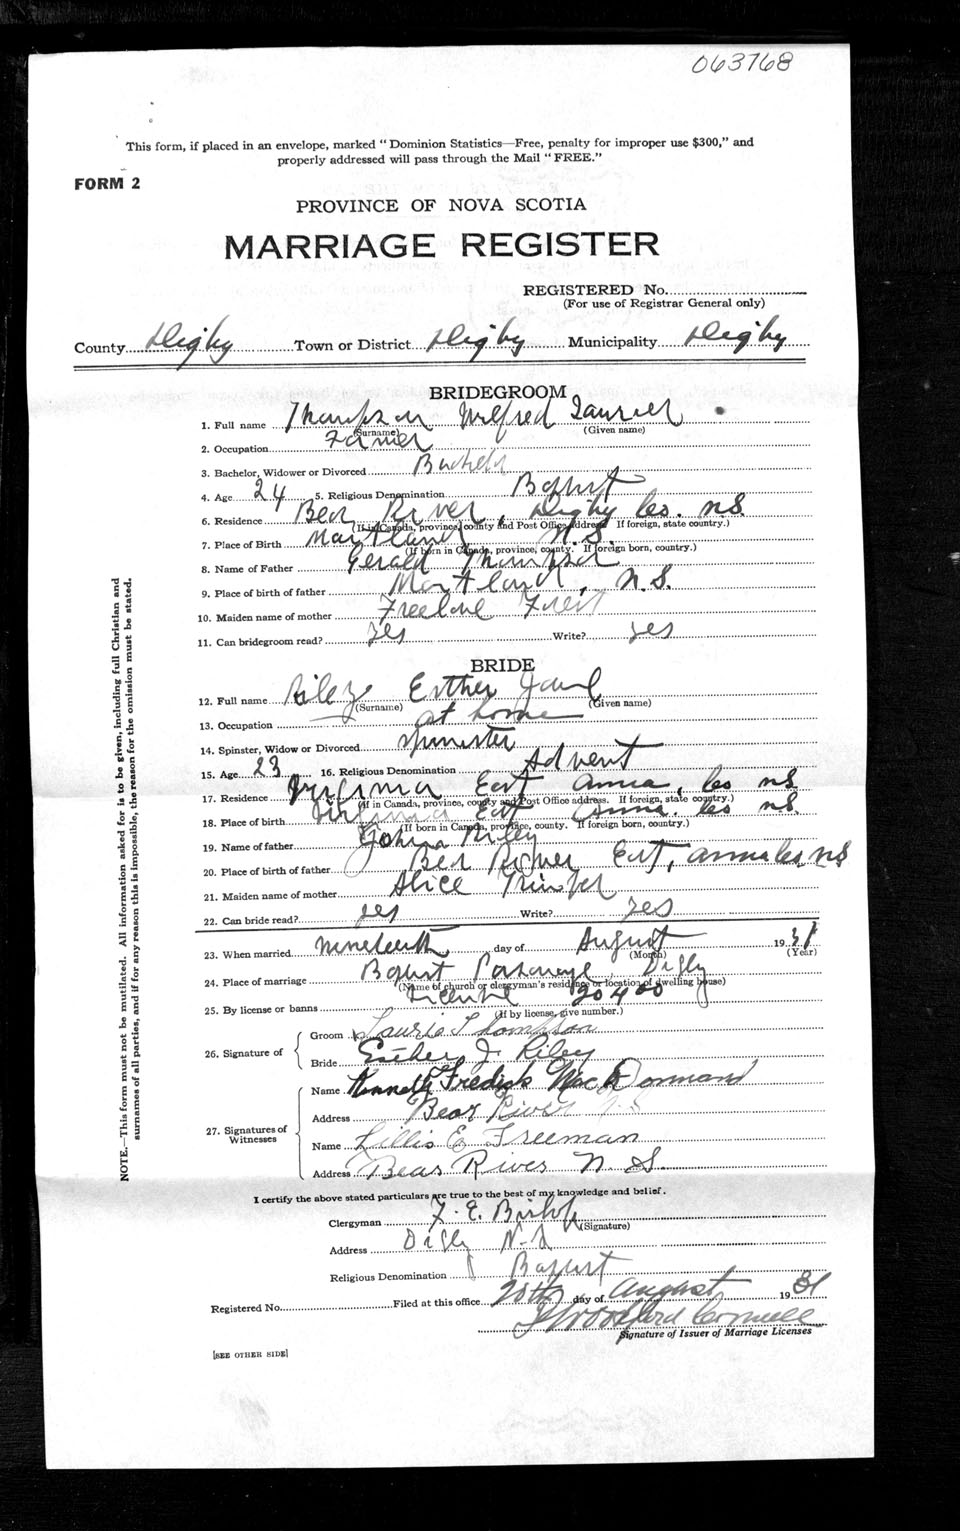 063768
This form, if placed in an envelope, marked "Dominion Statistics—Free, penalty for improper use $300," and
properly addressed will pass through the Mail "FREE."
FORM 2
PROVINCE OF NOVA SCOTIA
MARRIAGE REGISTER
REGISTERED No.
(For use of Registrar General only)
County Digby Town or District Digby Municipality Digby
BRIDEGROOM
1. Full name Thompson Wilfred Laurier
(Surname) (Given name)
2. Occupation Farmer
3. Bachelor, Widower or Divorced Bachelor
4. Age 24 5. Religious Denomination Baptist
6. Residence Bear River, Digby Co. N.S.
(If in Canada, province, county and Post Office address. If foreign, state country.)
7. Place of Birth Maitland N.S.
(If born in Canada, province, county. If foreign born, country.)
8. Name of Father Gerald Thompson
9. Place of birth of father Maitland, N.S.
10. Maiden name of mother Freelove
11. Can bridegroom read? Yes Write? Yes
BRIDE
12. Full name Riley Esther Jane
(Surname) (Given name)
13. Occupation at home
14. Spinster, Widow or Divorced Spinster
15. Age 23 16. Religious Denomination Advent
17. Residence Virginia East Anna. Co N.S.
(If in Canada, province, county and Post Office address. If foreign, state country.)
18. Place of birth Virginia East Anna. Co N.S.
(If born in Canada, province, county. If foreign born, country.)
19. Name of father Riley
20. Place of birth of father Bear River East, Anna Co N.S
21. Maiden name of mother Alice
22. Can bride read? Yes Write? Yes
23. When married nineteenth day of August 1931
(Month) (Year)
24. Place of marriage Baptist Parsonage, Digby
(Name of church or clergyman's residence or location of dwelling house)
25. By license or banns License 20400
(If by license, give number.)
26. Signature of
Groom Laurie Thompson
Bride Esther J. Riley
27. Signatures of Witnesses
Name Kenneth Fredick MacDormand
Address Bear River N.S
Name Lillis E Freeman
Address Bear River N. S.
I certify the above stated particulars are true to the best of my knowledge and belief.
Clergyman F. E. Bishop
(Signature)
Address Digby N.S
Religious Denomination Baptist
Registered No. Filed at this office 20th day of August 1931
Signature of Issuer of Marriage Licenses
[SEE OTHER SIDE]
NOTE.—This form must not be mutilated. All information asked for is to be given, including full Christian and
surnames of all parties, and if for any reason this is impossible, the reason for the omission must be stated.